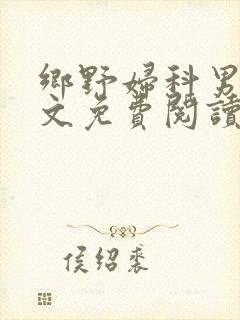 鄉野婦科男
文免費閱讀
侯紹裘